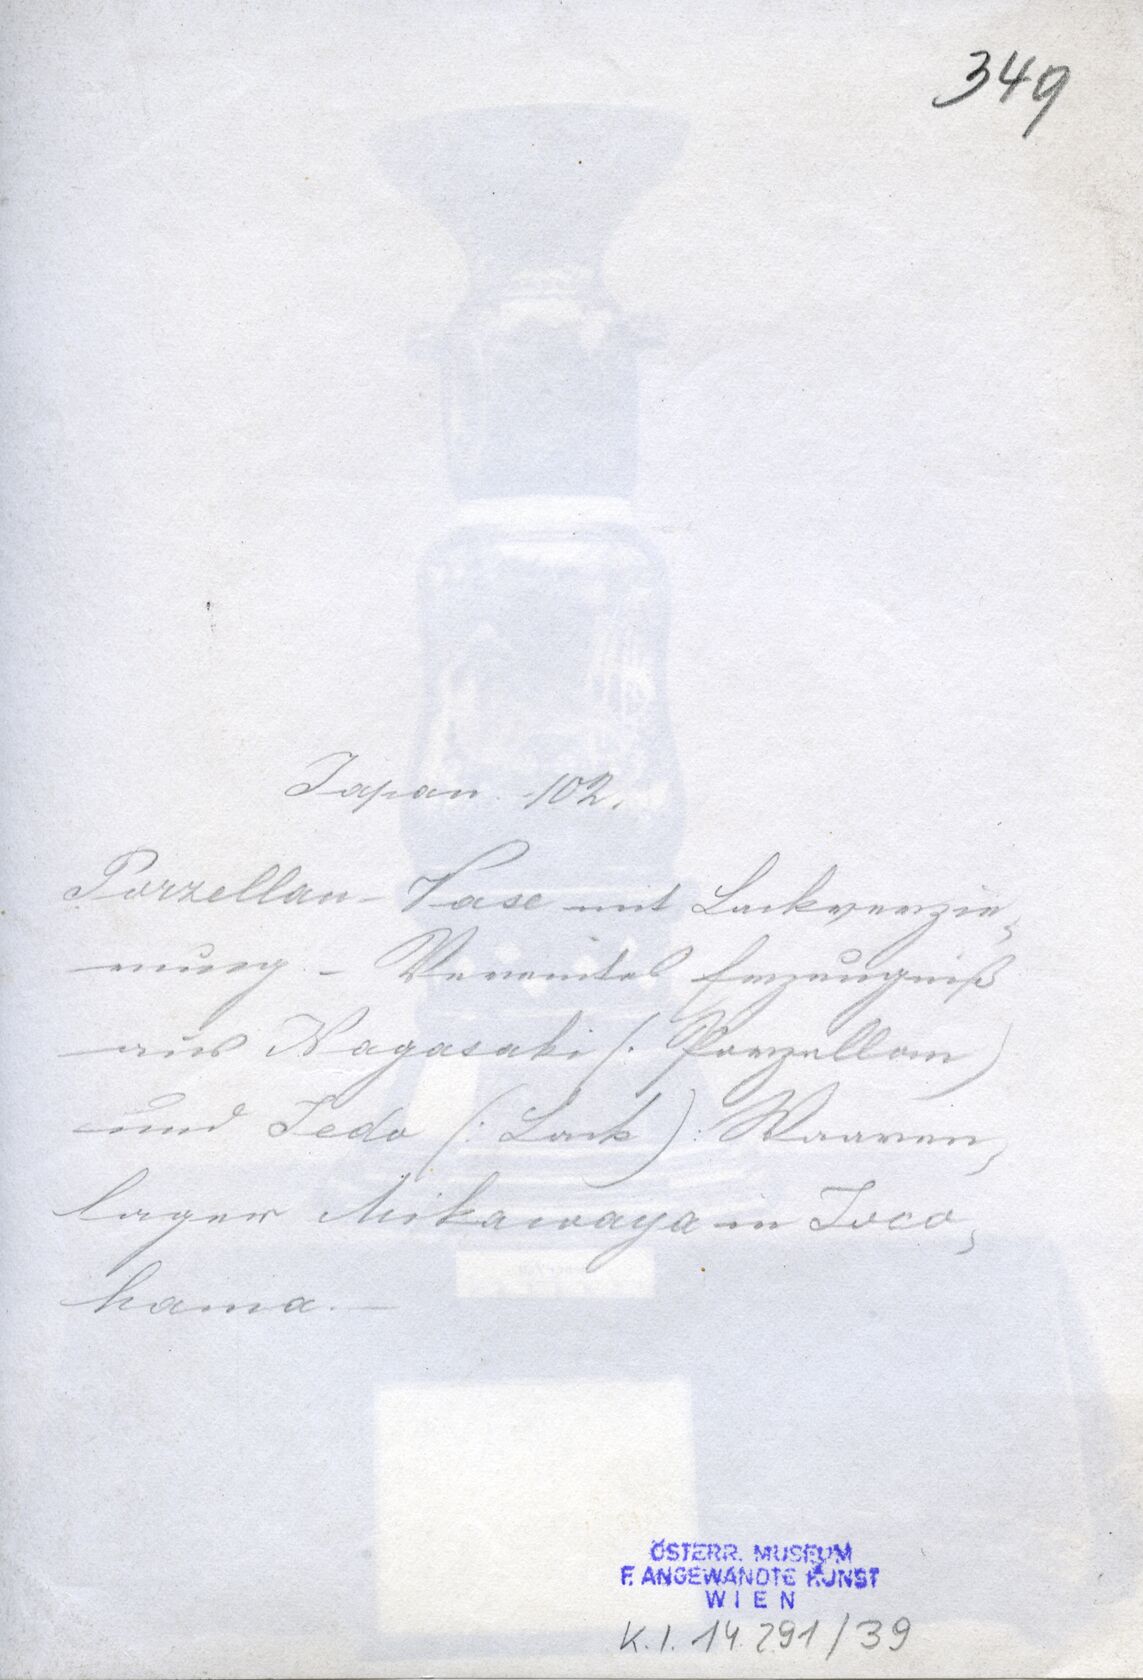 349
Japan 102.
Porzellan-Vase mit Lackverzie,
rung. - Vereintes Erzeugniß
aus Nagasaki (: Porzellan)
und Jedo (: Lack) : Waaren,
lager Mikawaya in Joco,
hama. —
ÖSTERR. MUSEUM
F. ANGEWANDTE KUNST
WIEN
K.I. 14.291/39